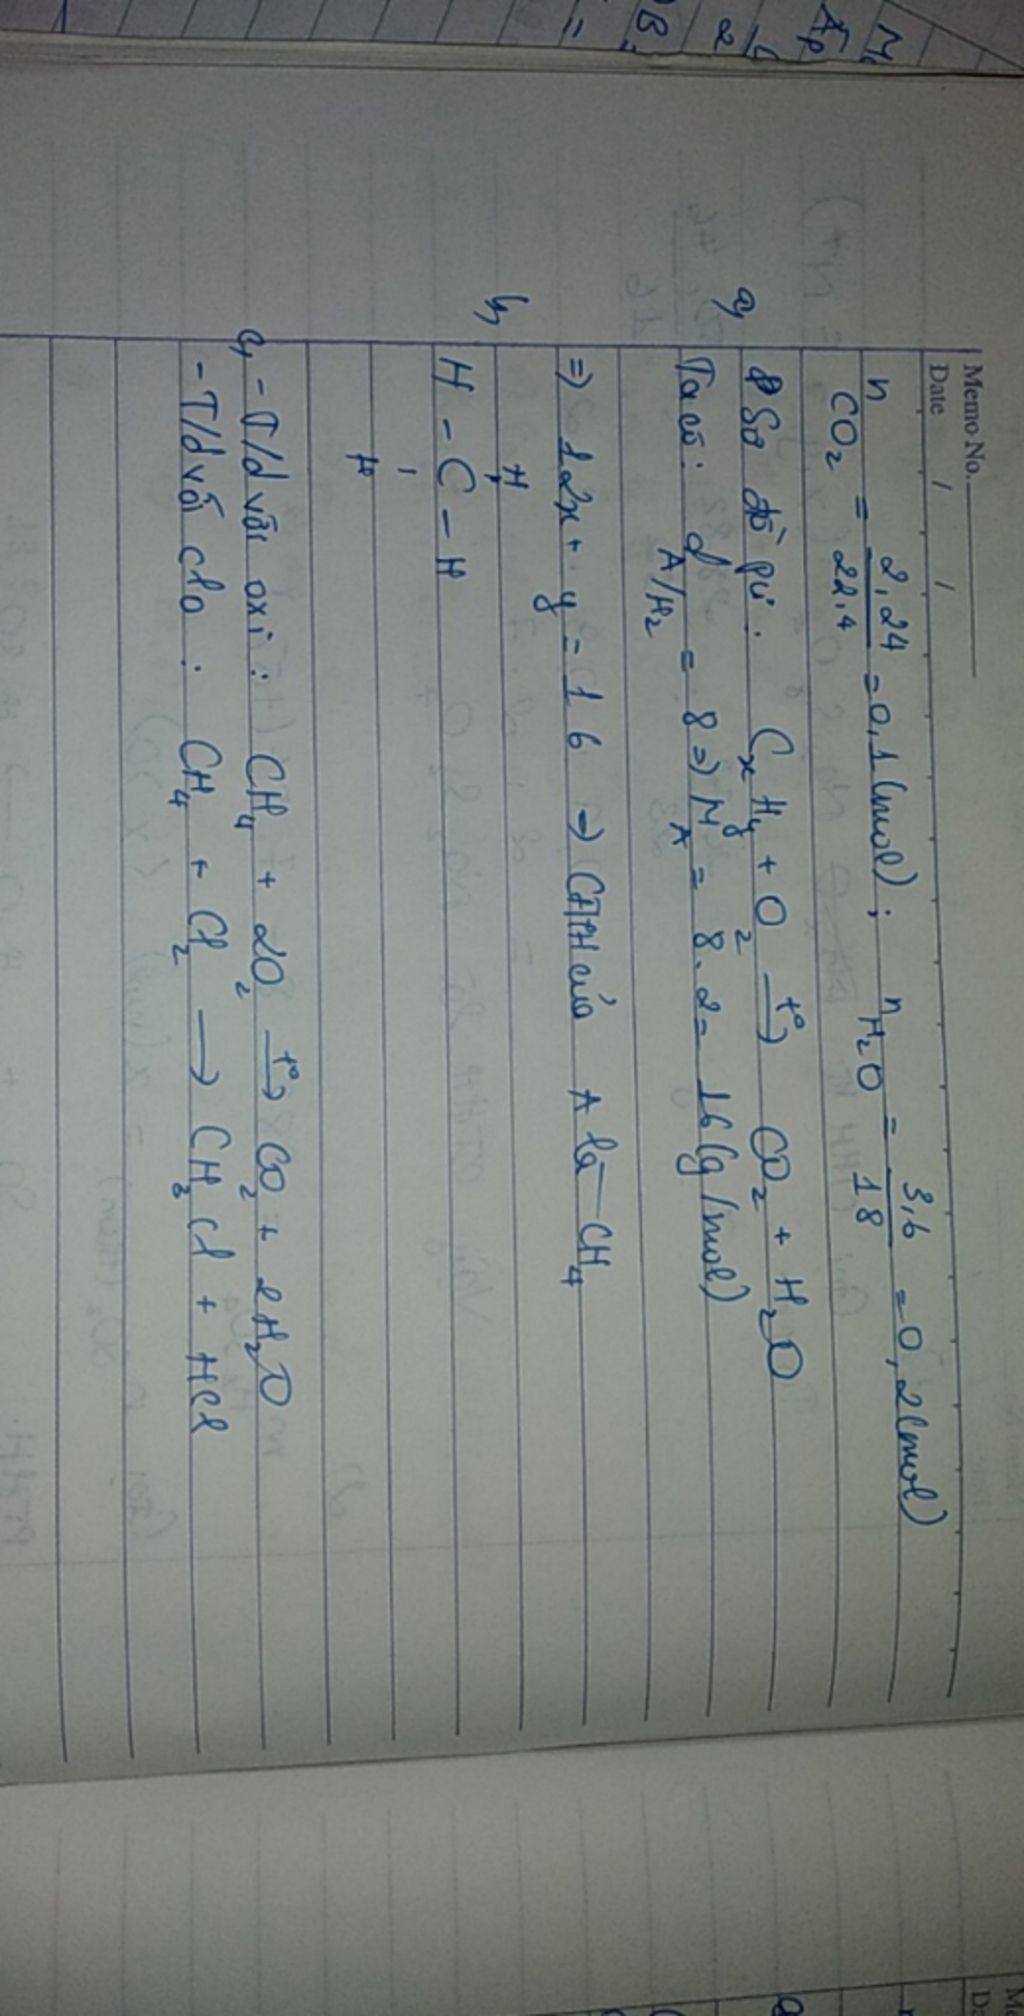 Memo No.
Date / /
n CO2 = 2,24 / 22,4 = 0,1 (mol) ; n H2O = 3,6 / 18 = 0,2 (mol)
a, Sơ đồ pư : CxHy + O2 →t° CO2 + H2O
Ta có : d A/H2 = 8 => M A = 8.2 = 16 (g/mol)
=> 12x + y = 16 => CTPH của A là CH4
b,
H
H - C - H
H
c, - T/d với oxi : CH4 + 2O2 →t° CO2 + 2H2O
- T/d với clo : CH4 + Cl2 → CH3Cl + HCl